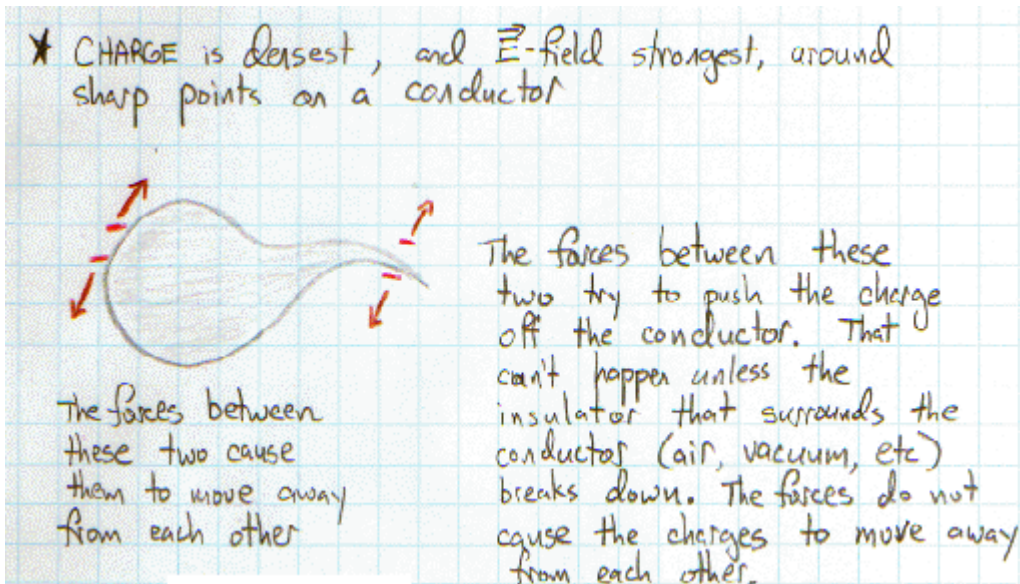 * CHARGE is densest, and E-field strongest, around
sharp points on a conductor
The forces between
these two cause
them to move away
from each other
The forces between these
two try to push the charge
off the conductor. That
can't happen unless the
insulator that surrounds the
conductor (air, vacuum, etc)
breaks down. The forces do not
cause the charges to move away
from each other.